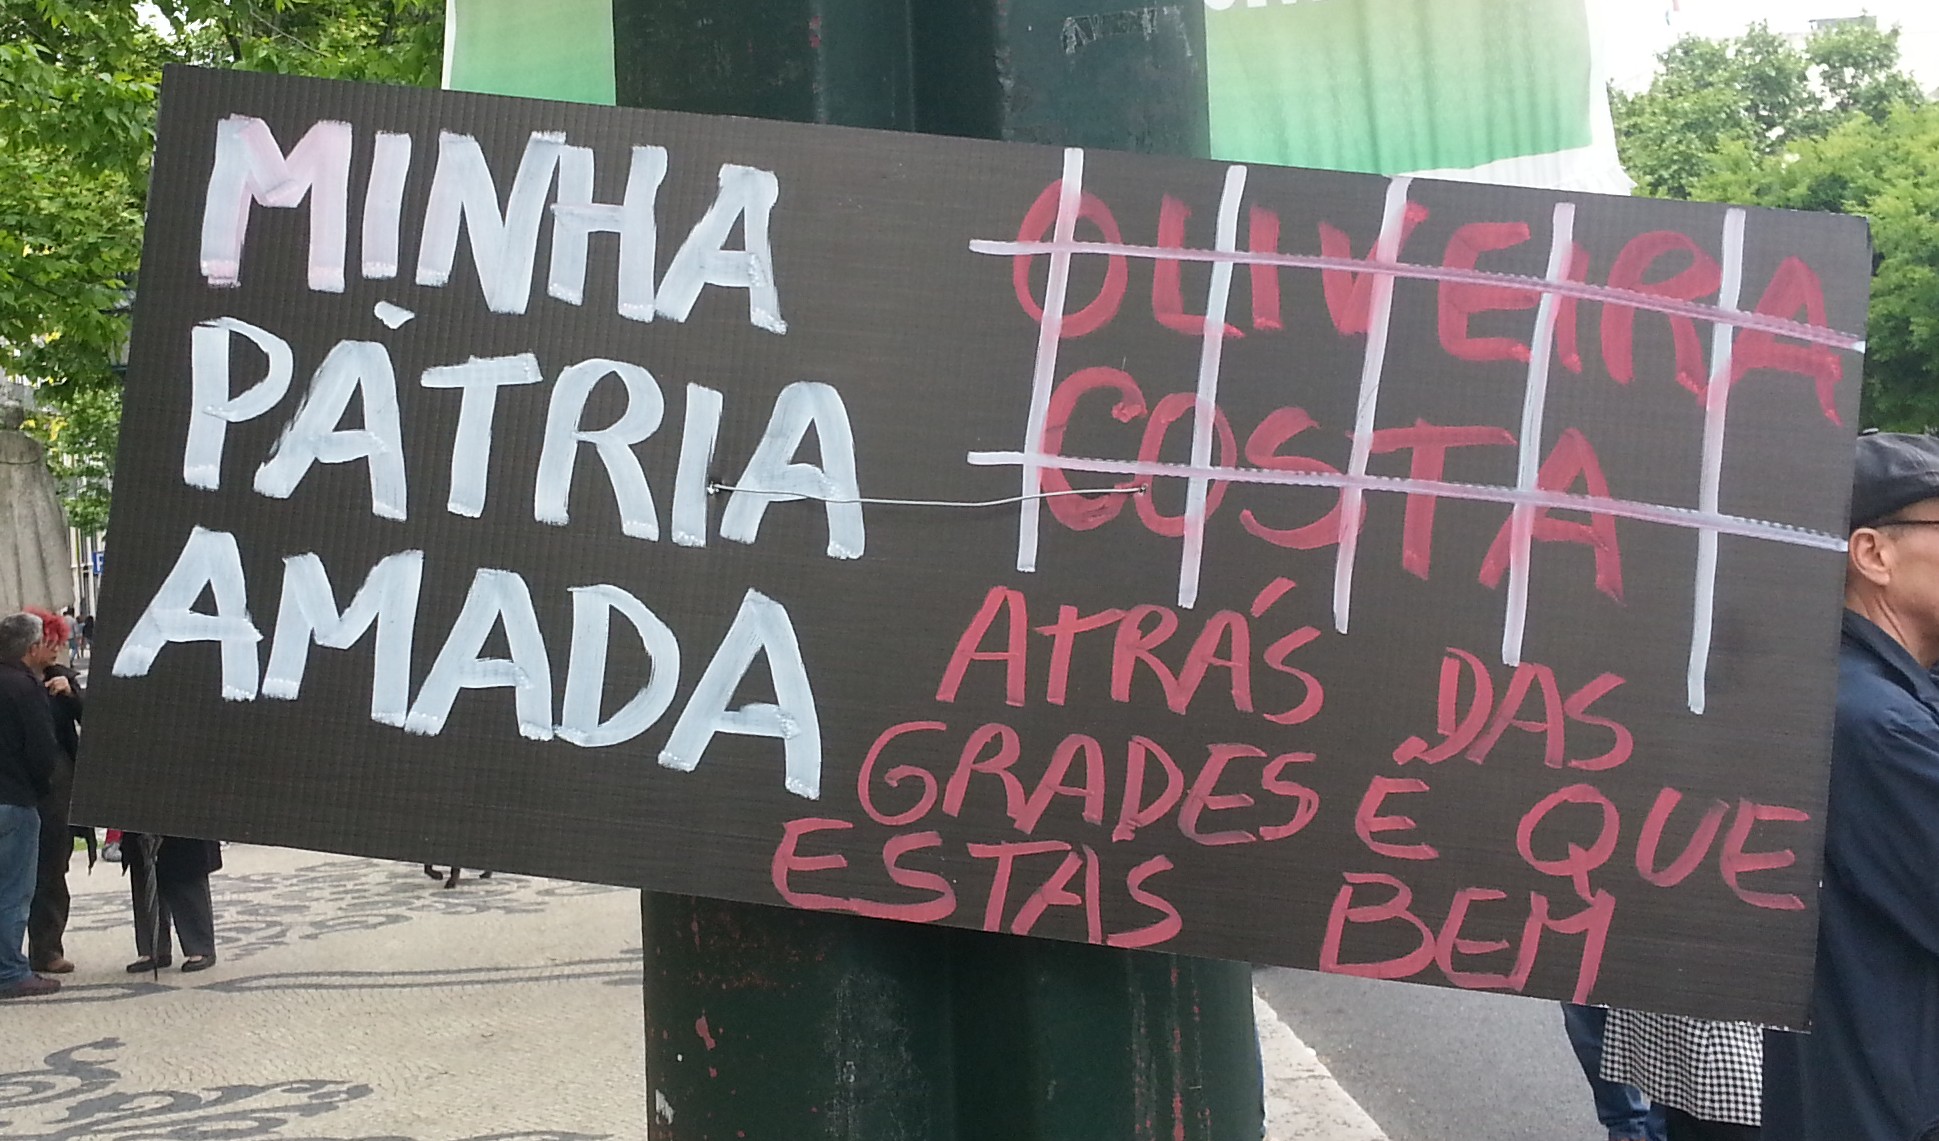 MINHA
PÁTRIA
AMADA
OLIVEIRA
COSTA
ATRÁS DAS
GRADES É QUE
ESTAS BEM